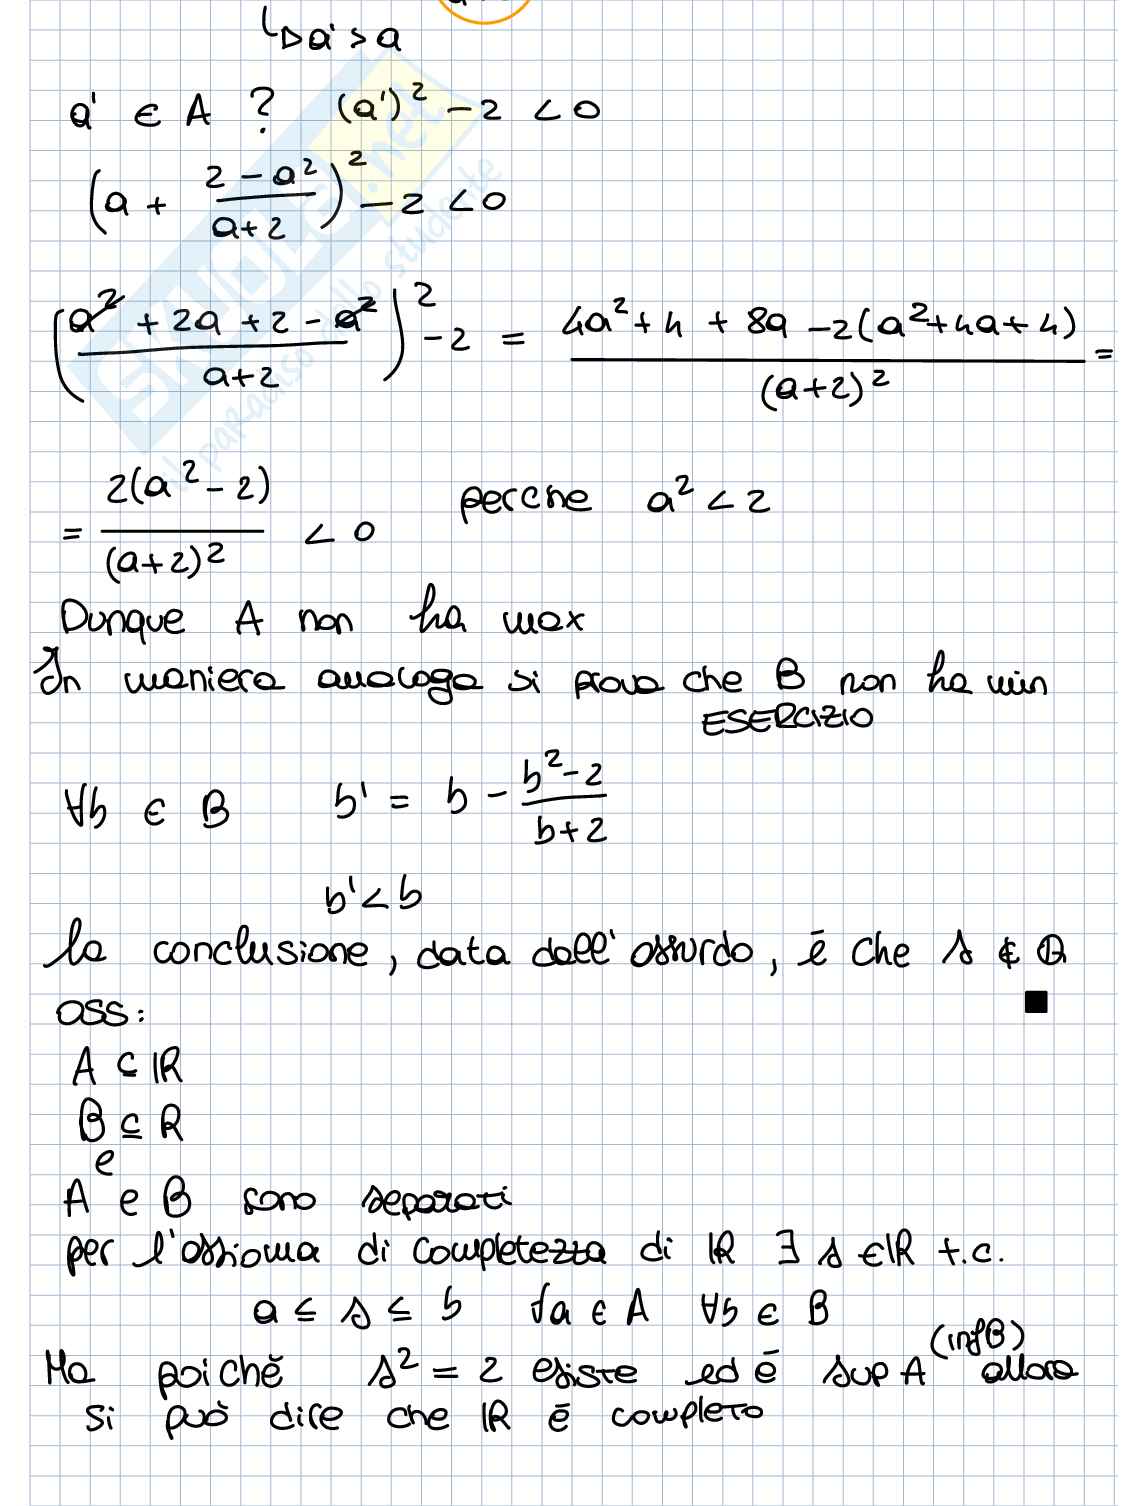 ↳ a' > a
a' ∈ A ? (a')² - 2 < 0
(a + (2 - a²)/(a+2))² - 2 < 0
((a² + 2a + 2 - a²)/(a+2))² - 2 = (4a² + 4 + 8a - 2(a² + 4a + 4))/(a+2)² =
= 2(a² - 2)/(a+2)² < 0 perche a² < 2
Dunque A non ha max
In maniera analoga si prova che B non ha min
ESERCIZIO
∀b ∈ B b' = b - (b² - 2)/(b+2)
b' < b
la conclusione, data dall'assurdo, è che s ∉ Q
■
OSS:
A ⊆ ℝ
B ⊆ R
e
A e B sono separati
per l'assioma di completezza di ℝ ∃ s ∈ ℝ t.c.
a ≤ s ≤ b ∀a ∈ A ∀b ∈ B
(inf B)
Ma poichè s² = 2 esiste ed è sup A allora
si può dire che ℝ è completo
SKUOLA.net
il paradiso dello studente